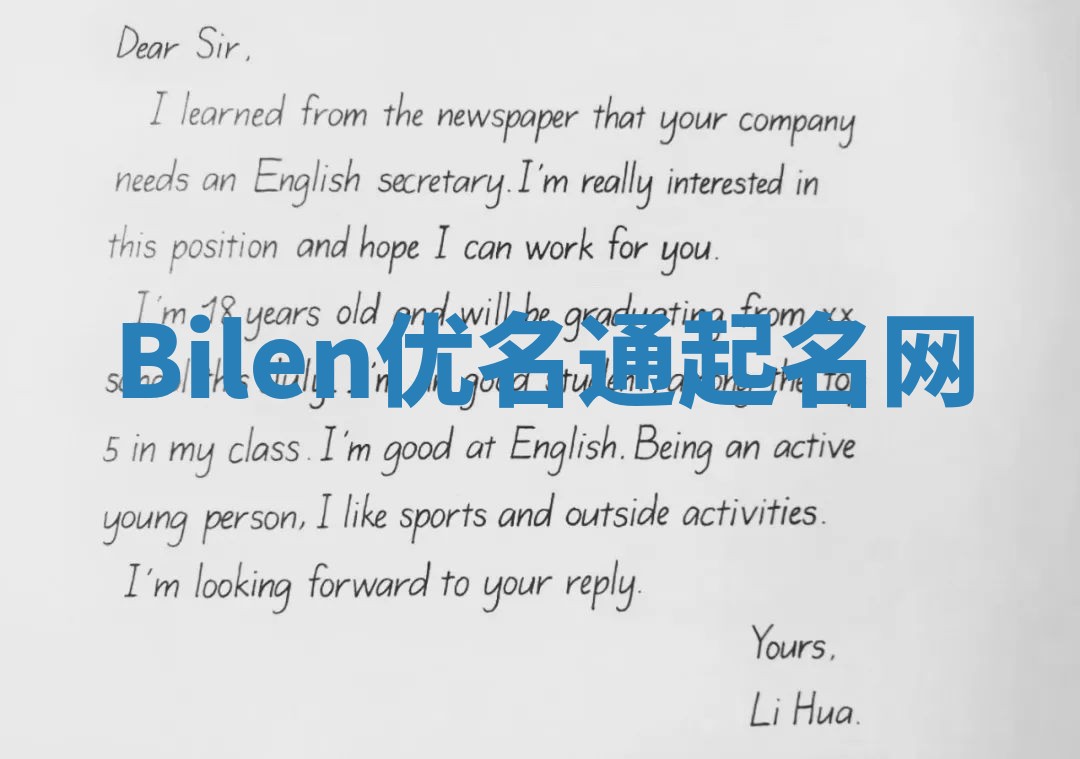 Dear Sir,
I learned from the newspaper that your company
needs an English secretary. I'm really interested in
this position and hope I can work for you.
I'm 18 years old and will be graduating from xx
Bilen优名通起名网
school this July. I'm good student, among the top
5 in my class. I'm good at English. Being an active
young person, I like sports and outside activities.
I'm looking forward to your reply.
Yours,
Li Hua.